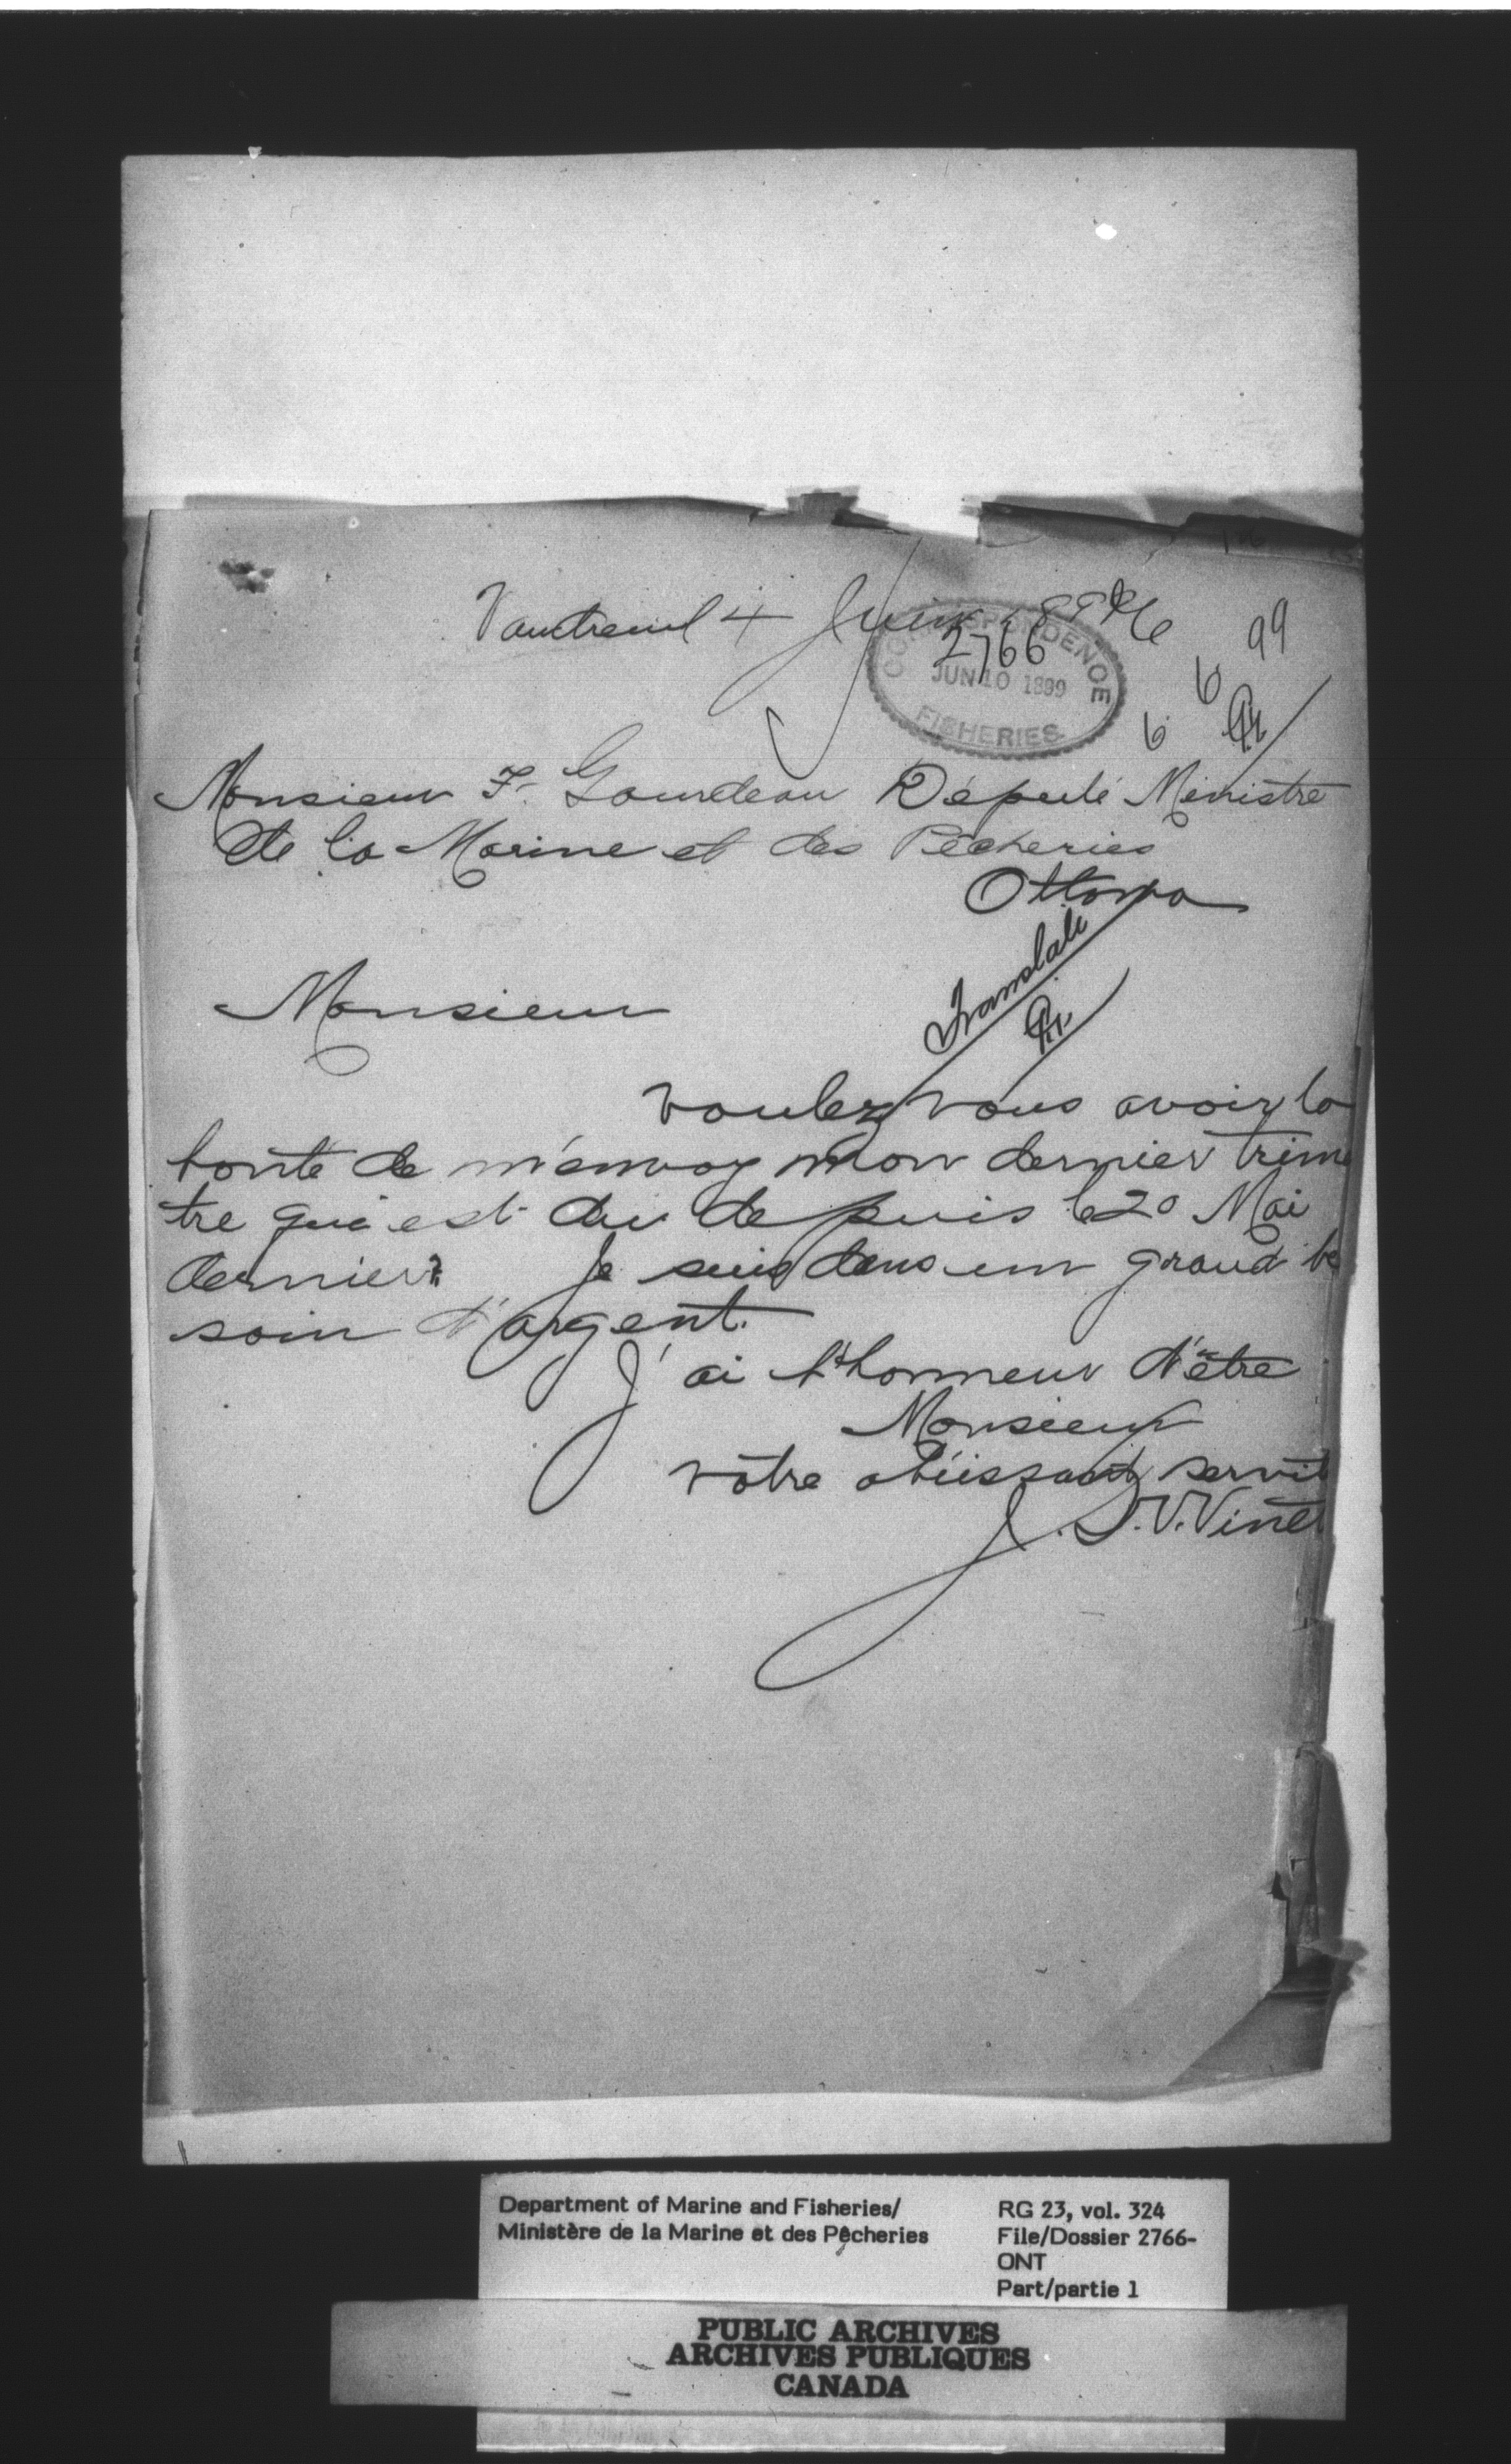 Vaudreuil 4 Juin 1899
99
6 6
CORRESPONDENCE
2766
JUN 10 1899
FISHERIES
Monsieur F. Gourdeau Député Ministre
de la Marine et des Pêcheries
Ottawa
Translate
Monsieur
voulez vous avoir la
bonté de m'envoy mon dernier trims
tre qui est du depuis le 20 Mai
dernier. Je suis dans un grand be
soin d'argent.
J'ai l'honneur d'être
Monsieur
vôtre obéissant servit
J. D. V. Vinet
Department of Marine and Fisheries/
Ministère de la Marine et des Pêcheries
RG 23, vol. 324
File/Dossier 2766-
ONT
Part/partie 1
PUBLIC ARCHIVES
ARCHIVES PUBLIQUES
CANADA